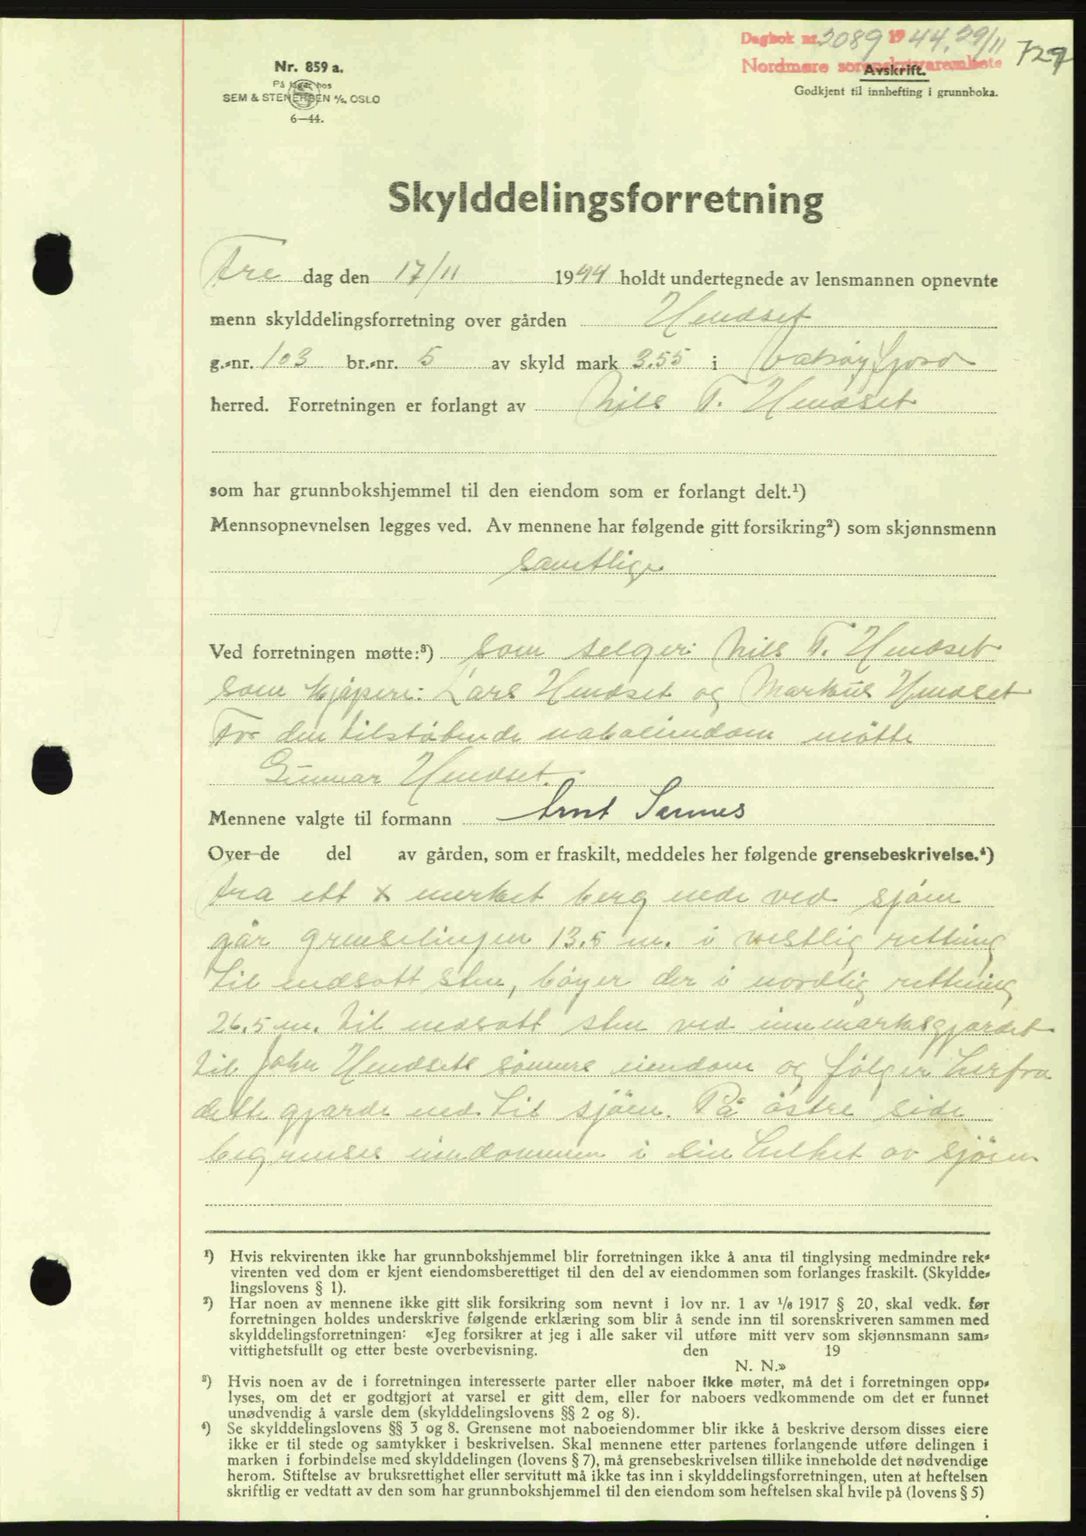 Dagbok nr. 2089 1944, 29/11 729
Nordmøre sorenskriverembete
Avskrift.
Godkjent til innhefting i grunnboka.
Nr. 859 a.
På lager hos
SEM & STENERSEN A/S, OSLO
6—44.
Skylddelingsforretning
Fre dag den 17/11 1944 holdt undertegnede av lensmannen opnevnte
menn skylddelingsforretning over gården Hendset
g.-nr. 103 br.-nr. 5 av skyld mark 3.55 i Valsøyfjord
herred. Forretningen er forlangt av Nils T. Hendset
som har grunnbokshjemmel til den eiendom som er forlangt delt.¹)
Mennsopnevnelsen legges ved. Av mennene har følgende gitt forsikring²) som skjønnsmenn
samtlige
Ved forretningen møtte:³) som selger: Nils T. Hendset
som kjøpere: Lars Hendset og Markus Hendset
For den tilstøtende naboeiendom møtte
Gunnar Hendset.
Mennene valgte til formann Arnt
Over de del av gården, som er fraskilt, meddeles her følgende grensebeskrivelse.⁴)
Fra ett x merket berg nede ved sjøen
går grenselinjen 13.5 m. i vestlig rettning
til nedsatt sten, bøyer der i nordlig rettning
26.5 m. til nedsatt sten ved innmarksgjerdet
til John Hendsets sønners eiendom og følger herfra
dette gjerde ned til sjøen. På østre side
begrenses eiendommen i sin helhet av sjøen
¹) Hvis rekvirenten ikke har grunnbokshjemmel blir forretningen ikke å anta til tinglysing medmindre rek-
virenten ved dom er kjent eiendomsberettiget til den del av eiendommen som forlanges fraskilt. (Skyldde-
lingslovens § 1).
²) Har noen av mennene ikke gitt slik forsikring som nevnt i lov nr. 1 av 1/6 1917 § 20, skal vedk. før
forretningen holdes underskrive følgende erklæring som blir å sende inn til sorenskriveren sammen med
skylddelingsforretningen: «Jeg forsikrer at jeg i alle saker vil utføre mitt verv som skjønnsmann sam-
vittighetsfullt og etter beste overbevisning. den 19
N. N.»
³) Hvis noen av de i forretningen interesserte parter eller naboer ikke møter, må det i forretningen opp-
lyses, om det er godtgjort at varsel er gitt dem, eller for naboers vedkommende om det er funnet
unødvendig å varsle dem (skylddelingslovens §§ 2 og 8).
⁴) Se skylddelingslovens §§ 3 og 8. Grensene mot naboeiendommer blir ikke å beskrive dersom disses eiere
ikke er til stede og samtykker i beskrivelsen. Skal mennene etter partenes forlangende utføre delingen i
marken i forbindelse med skylddelingen (lovens § 7), må grensebeskrivelsen tillike inneholde det nødvendige
herom. Stiftelse av bruksrettighet eller servitutt må ikke tas inn i skylddelingsforretningen, uten at heftelsen
skriftlig er vedtatt av den som har grunnbokshjemmel til den eiendom som heftelsen skal hvile på (lovens § 5)